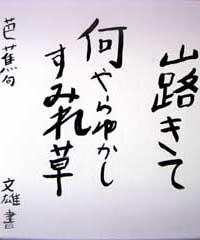 山路きて
何やらゆかし
すみれ草
芭蕉句
文雄書